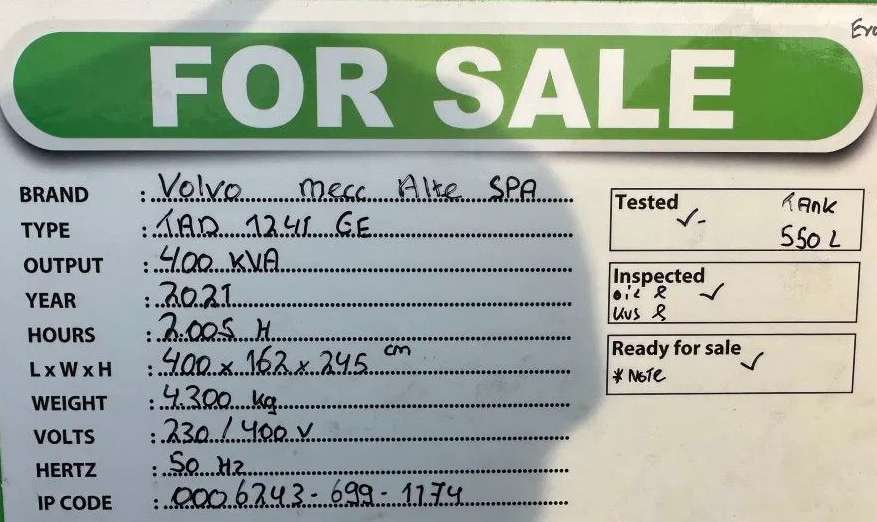 FOR SALE
BRAND : Volvo mecc Alte SPA
TYPE : TAD 1241 GE
OUTPUT : 400 KVA
YEAR : 2021
HOURS : 2.005 H
L x W x H : 400 x 162 x 245 cm
WEIGHT : 4.300 kg
VOLTS : 230 / 400 V
HERTZ : 50 Hz
IP CODE : 0006243-699-1174
Tested ✓- TANK
550 L
Inspected ✓
oil &
Ready for sale ✓
* NOTE